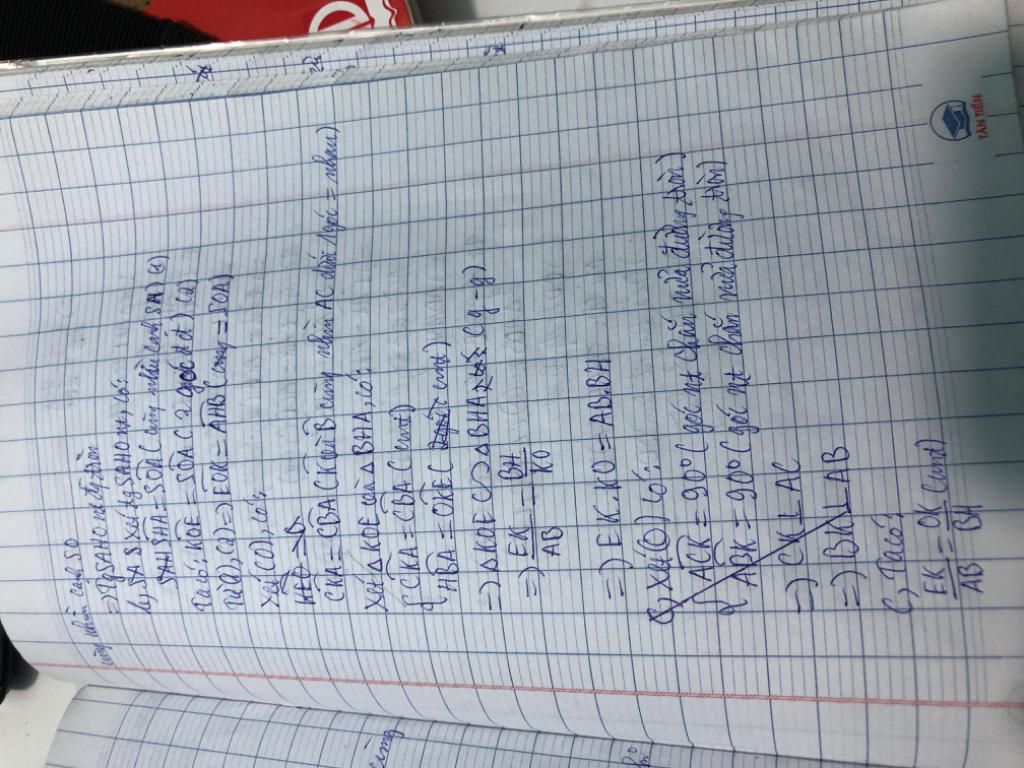 cùng nhìn cạnh SO
=) tg SAHO nt đg tròn
b, SA Xét tg SAHO nt, có:
SHA = SOA ( cùng nhìn cạnh SA ) (1)
Ta có: KOE = SOA ( 2 góc đ đ ) (2)
Từ (1), (2) =) EOK = AHB ( cùng = SOA )
Xét (O), có:
CKA = CBA ( K và B cùng nhìn AC dưới 1 góc = nhau )
Xét Δ KOE và Δ BHA, có:
{ CKA = CBA ( cmt )
HBA = OKE ( cmt )
=) Δ KOE ∽ Δ BHA ( g - g )
=) EK/AB = BH/KO
=) EK. KO = AB. BH
c, Xét (O) có:
{ ACK = 90° ( góc nt chắn nửa đường tròn )
ABK = 90° ( góc nt chắn nửa đường tròn )
=) CK ⊥ AC
=) BK ⊥ AB
c, Ta có:
EK/AB = OK/BH ( cmt )
TÂN TIẾN
cùng